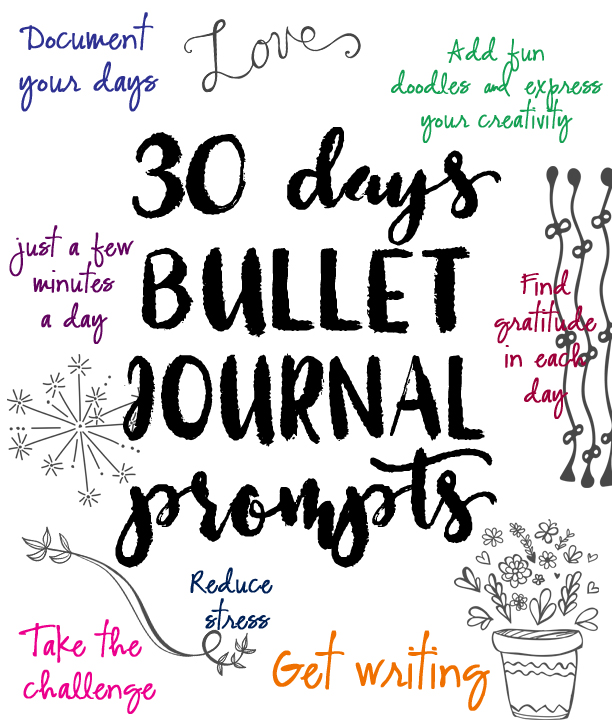 Document
your days
Love
Add fun
doodles and express
your creativity
30 days
BULLET
JOURNAL
prompts
just a few
minutes
a day
Find
gratitude
in each
day
Reduce
stress
Take the
challenge
Get writing